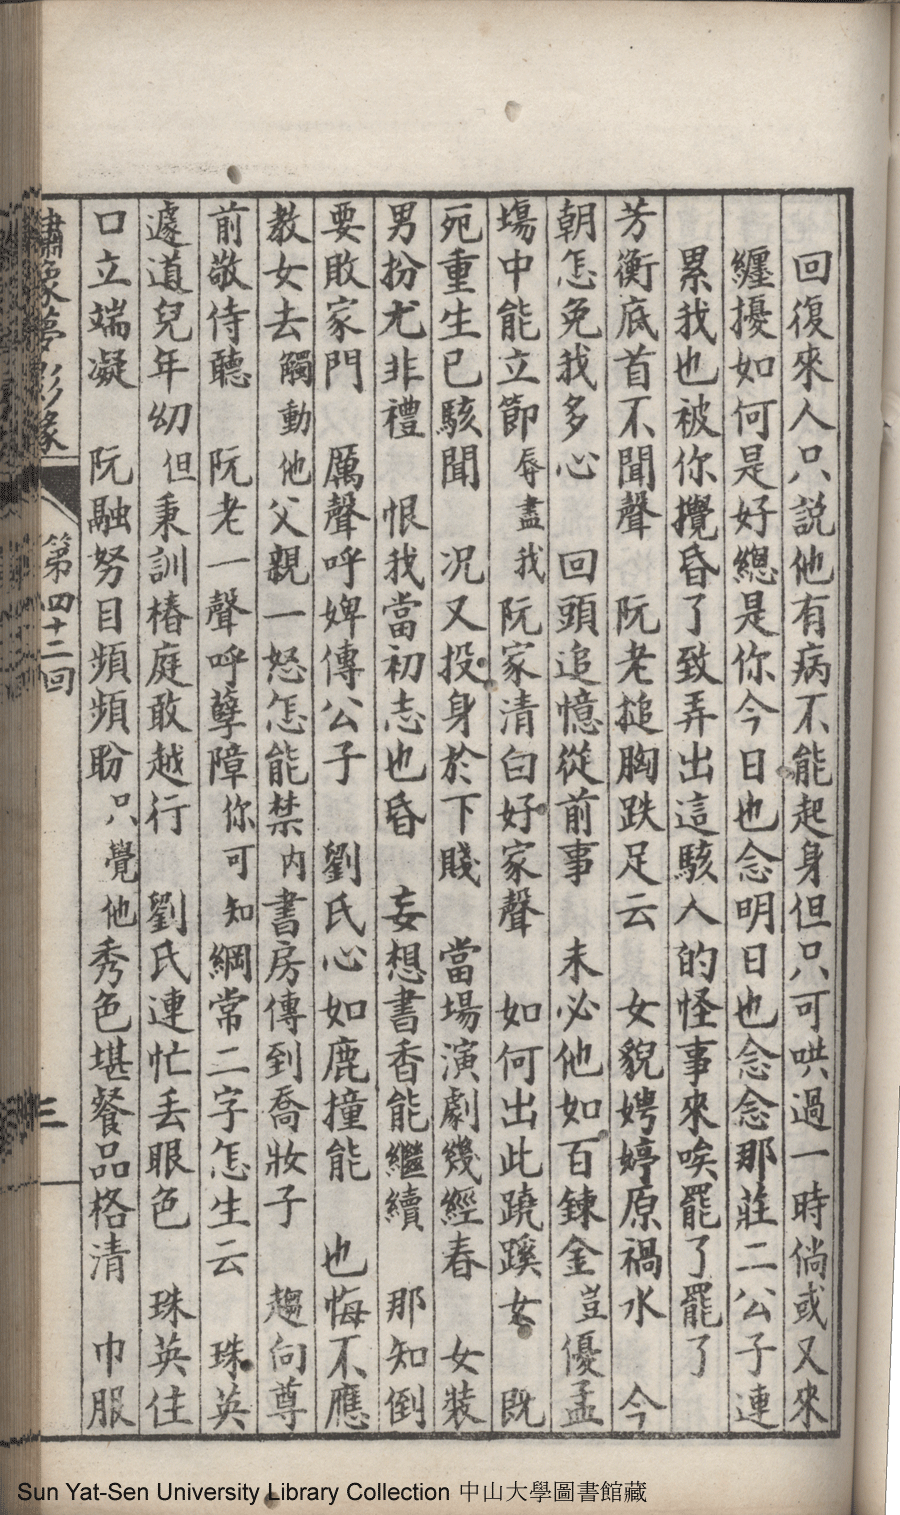 回復來人只說他有病不能起身但只可哄過一時倘或又來
纏擾如何是好總是你今日也念明日也念念那莊二公子連
累我也被你攪昏了致弄出這駭人的怪事來唉罷了罷了
芳衡底首不聞聲 阮老搥胸跌足云 女貌娉婷原禍水 今
朝怎免我多心 回頭追憶從前事 未必他如百鍊金 豈優孟
塲中能立節 辱盡我阮家清白好家聲 如何出此蹺蹊女 既
死重生已駭聞 况又投身於下賤 當場演劇幾經春 女装
男扮尤非禮 恨我當初志也昏 妄想書香能繼續 那知倒
要敗家門 厲聲呼婢傳公子 劉氏心如鹿撞能 也悔不應
教女去 觸動他父親一怒怎能禁 内書房傳到喬妝子 趨向尊
前敬侍聽 阮老一聲呼孽障 你可知綱常二字怎生云 珠英
遽道兒年幼 但秉訓椿庭敢越行 劉氏連忙丢眼色 珠英住
口立端凝 阮融努目頻頻盼 只覺他秀色堪餐品格清 巾服
繡像夢影緣 第四十二回 三
Sun Yat-Sen University Library Collection 中山大學圖書館藏